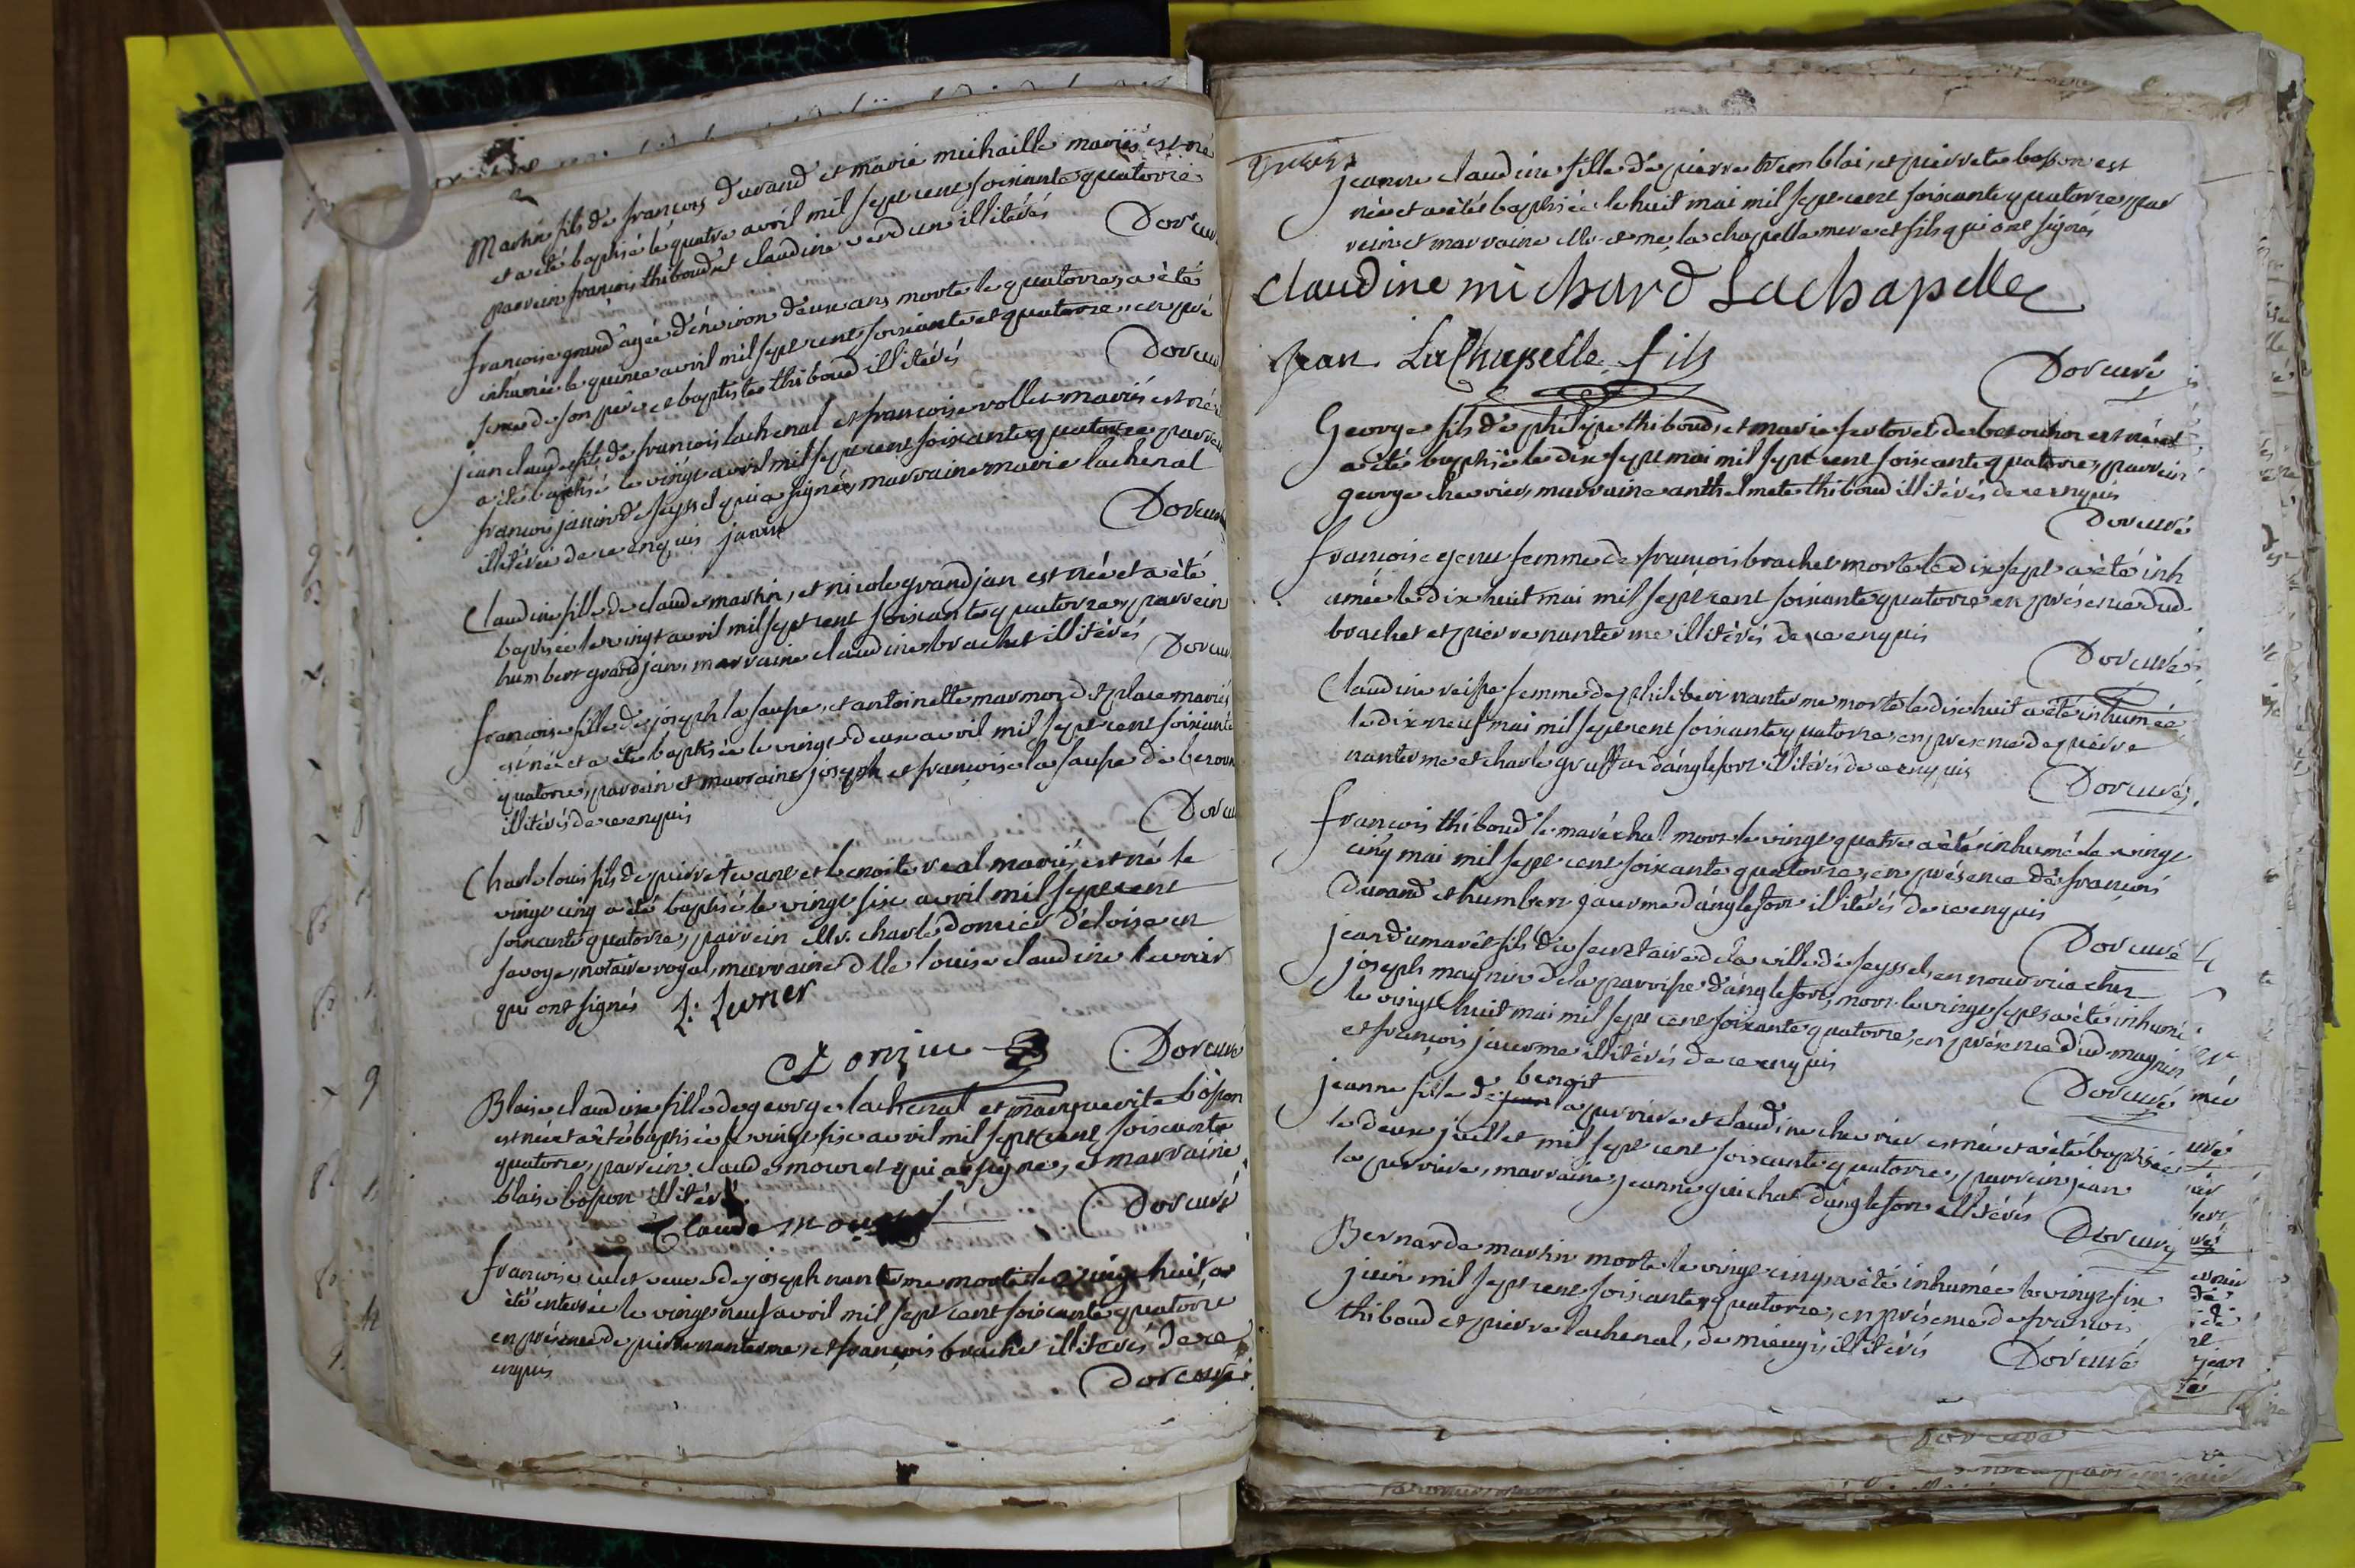 Martin fils de françois durand et marie michaille mariés est né
et a été baptisé le quatre avril mil sept cent soixante quatorze
parrein françois thiboud et claudine verdun illitérés
Dor cur
françoise grand agée d'environ deux ans morte le quatorze, a été
inhumée le quinze avril mil sept cent soixante et quatorze, en pré
sence de son père et baptiste thiboud illitérés
Dor cur
jean claude fils de françois lachenal et françoise vollet mariés est né
a été baptisé le vingt avril mil sept cent soixante quatorze parrei
françois janin de seyssel qui a signé, marraine marie lachenal
illitérée de ce enquis janin
Dor cur
Claudine fille de claude martin, et nicole grandjan est née et a été
baptisée le vingt avril mil sept cent soixante quatorze, parrein
humbert grandjan marraine claudine brachet illitérés
Dor cur
françoise fille de joseph la saupe, et antoinette marmond place mariés
est née et a été baptisée le vingt deux avril mil sept cent soixante
quatorze, parrein et marraine joseph et françoise la saupe de
illitérés de ce enquis
Dor cu
Charle louis fils de pierre et benoite real mariés, est né le
vingt cinq a été baptisé le vingt six avril mil sept cent
soixante quatorze, parrein Mr. charle d'éloise en
savoye, notaire royal, marraine Dlle louise claudine
qui ont signés
Dor curé
Blaise claudine fille de george lachenal et marguerite bosson
est née et a été baptisée le vingt six avril mil sept cent soixante
quatorze, parrein claude mouret qui a signé, et marraine
blaise bosson illitéré
Claude
Dor curé
françoise culet veuve de joseph nanterme morte le vingt huit a
été enterrée le vingt neuf avril mil sept cent soixante quatorze
en présence de pierre nanterme, et françois brachet illitérés de ce
enquis
Dor curé
jeanne claudine fille de pierre tremblai, et pierrete bosson est
née et a étés baptisée le huit mai mil sept cent soixante quatorze, par
rein et marraine Mr. et me, la chapelle mere et fils qui ont signés
Claudine michard Lachapelle
Jean LaChapelle fils
Dor curé
George fils de philippe thiboud, et marie fertoret de est né et
a été baptisé le dix sept mai mil sept cent soixante quatorze, parrein
george chevrier, marraine anthelmete thiboud illitérés de ce enquis
Dor curé
françoise genu femme de françois brachet morte le dix sept a été inh
umée le dix huit mai mil sept cent soixante quatorze en présence dud.
brachet et pierre nanterme illitérés de ce enquis
Dor curé
Claudine femme de philibert nanterme morte le dix huit a été inhumée
le dix neuf mai mil sept cent soixante quatorze, en presence de pierre
nanterme et charle gruffat d'anglefort illitérés de ce enquis
Dor curé
françois thiboud le maréchal mort le vingt quatre a été inhumé le vingt
cinq mai mil sept cent soixante quatorze, en présence de françois
Durand et humbert jaurme d'anglefort illitérés de ce enquis
Dor curé
jean dumarêt fils du secretaire de la ville de seyssel, en nourrice chez
joseph magnin de la parroisse d'anglefort, mort le vingt sept a été inhumé
le vingt huit mai mil sept cent soixante quatorze, en présence dud. magnin
et françois jaurme illitérés de ce enquis
Dor curé
benoit
jeanne fille de jean la perriere et claudine chevrier est née et a été baptisée
le deux juillet mil sept cent soixante quatorze, parrein jean
la perriere, marraine jeanne guichat d'anglefort illitérés
Dor curé
Bernarde martin morte le vingt cinq, a été inhumée le vingt six
juin mil sept cent soixante quatorze, en présence de françois
thiboud et pierre lachenal, de mieugi illitérés
Dor curé